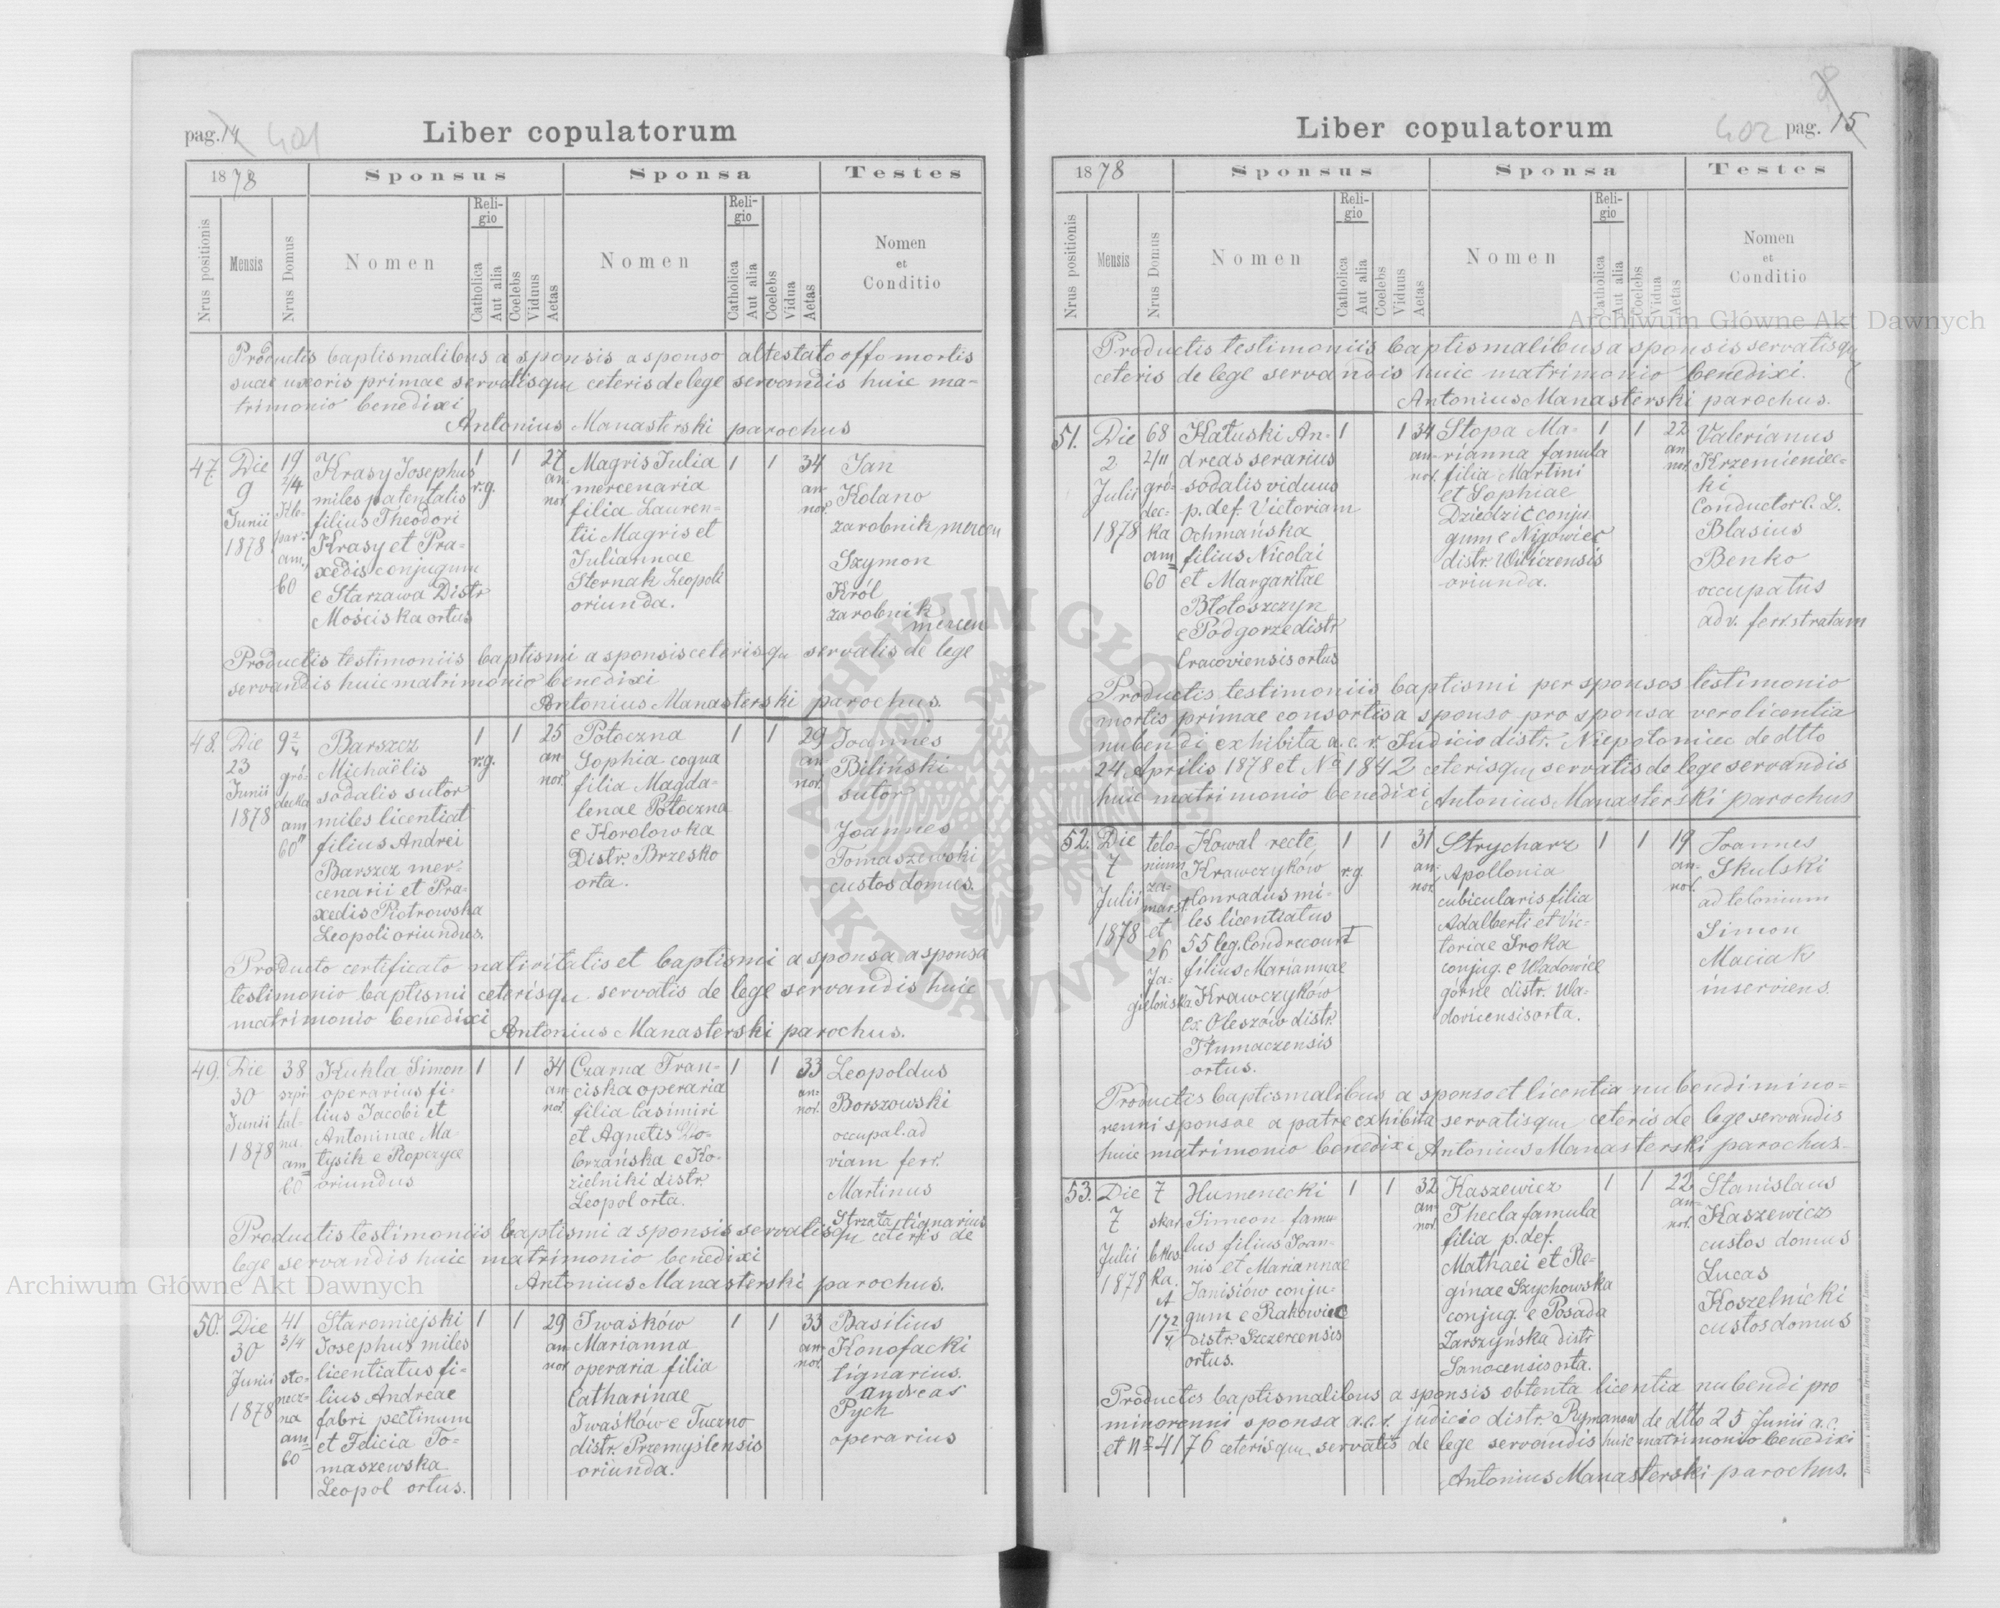 pag. 14 401
Liber copulatorum
1878 Sponsus Sponsa Testes
Nrus positionis
Mensis
Nrus Domus
Nomen
Religio
Catholica
Aut alia
Coelebs
Viduus
Aetas
Nomen
Religio
Catholica
Aut alia
Coelebs
Vidua
Aetas
Nomen
et
Conditio
Productis baptismalibus a sponsis a sponso attestato offo mortis
suae uxoris primae servatisqu ceteris de lege servandis huic ma-
trimonio benedixi
Antonius Manasterski parochus
47.
Die
9
Junii
1878
19
2/4
par:
am.
60
Krasy Josephus
miles patentalis
filius Theodori
Krasy et Pra-
xedis conjugum
e Starzawa Distr
Mościska ortus
1
r.g.
1
27
an
nor.
Magris Julia
mercenaria
filia Lauren-
tii Magris et
Juliannae
Sternak Leopoli
oriunda.
1
1
34
an-
nor.
Jan
Kolano
zarobnik mercen
Szymon
Król
zarobnik
mercen
Productis testimoniis baptismi a sponsis ceterisqu servatis de lege
servandis huic matrimonio benedixi
Antonius Manasterski parochus.
48.
Die
23
Junii
1878
9 2/4
gró-
decka
am
60
Barszcz
Michaëlis
sodalis sutor
miles licentiat
filius Andrei
Barszcz mer-
cenarii et Pra-
xedis Piotrowska
Leopoli oriundus.
1
r.g.
1
25
an-
nor.
Potoczna
Sophia coqua
filia Magda-
lenae Potoczna
e Korolowka
Distr. Brzesko
orta.
1
1
29
an
nor.
Joannes
Biliński
sutor
Joannes
Tomaszewski
custos domus.
Producto certificato nativitatis et baptismi a sponsa a sponsa
testimonio baptismi ceterisqu servatis de lege servandis huic
matrimonio benedixi
Antonius Manasterski parochus.
49.
Die
30
Junii
1878
38
szpi-
tal-
na.
am
60
Kuhla Simon
operarius fi-
lius Jacobi et
Antoninae Ma-
tysik e Ropczyce
oriundus
1
1
34
an
nor.
Czarna Fran-
ciska operaria
filia Casimiri
et Agnetis Do-
brzańska e Ko-
zielniki distr.
Leopol orta.
1
1
33
an-
nor.
Leopoldus
Borszowski
occupal. ad
viam ferr.
Martinus
Strzata tignarius
Productis testimoniis baptismi a sponsis servatisqu ceteris de
lege servandis huic matrimonio benedixi
Antonius Manasterski parochus.
50.
Die
30
Junii
1878
41
3/4
sło-
necz-
na
am
60
Staromiejski
Josephus miles
licentiatus fi-
lius Andreae
fabri pectinum
et Felicia To-
maszewska
Leopol ortus.
1
1
29
an
nor
Iwasków
Marianna
operaria filia
Catharinae
Iwaśków e Tuczno
distr. Przemyślensis
oriunda.
1
1
33
an-
nor.
Basilius
Konofacki
tignarius.
Andreas
Pych
operarius
Liber copulatorum
402 pag. 15
1878 Sponsus Sponsa Testes
Nrus positionis
Mensis
Nrus Domus
Nomen
Religio
Catholica
Aut alia
Coelebs
Viduus
Aetas
Nomen
Religio
Catholica
Aut alia
Coelebs
Vidua
Aetas
Nomen
et
Conditio
Productis testimoniis baptismalibus a sponsis servatisqu
ceteris de lege servandis huic matrimonio benedixi.
Antonius Manasterski parochus.
51.
Die
2
Julii
1878
68
2/11
gro-
dec-
ka
am
60
Katuski An-
dreas serarius
sodalis viduus
p. def. Victoriam
Ochmańska
filius Nicolai
et Margaritae
Błotoszczyn
e Podgorze distr
Cracoviensis ortus
1
1
34
an-
nor.
Stopa Ma-
rianna famula
filia Martini
et Sophiae
Dziedzic conju
gum e Nigowiec
distr. Wiliczensis
oriunda.
1
1
22
an
nor.
Valerianus
Krzemieniec-
ki
Conductor C. L.
Blasius
Benko
occupatus
ad v. ferr stratam
Productis testimoniis baptismi per sponsos testimonio
mortis primae consortis a sponso pro sponsa vero licentia
nubendi exhibita a. c. r. Judicio distr. Niepołomiec de dtto
24 Aprilis 1878 et No 1842 ceterisqu servatis de lege servandis
huic matrimonio benedixi Antonius Manasterski parochus
52.
Die
7
Julii
1878
telo-
nium
za-
marst.
et
26
Ja-
gielońska
Kowal recte
Krawczyków
Conradus mi-
les licentiatus
55 leg. Condrecourt
filius Mariannae
Krawczyków
ex Oleszów distr.
Tłumaczensis
ortus.
1
r.g
1
31
an-
nor.
Strycharz
Apollonia
cubicularis filia
Adalberti et Vic-
toriae Sroka
conjug. e Wadowice
górne distr. Wa-
dovicensis orta.
1
1
19
an-
nor.
Joannes
Skulski
ad telonium
Simon
Maciak
inserviens.
Productis baptismalibus a sponso et licentia nubendi mino-
renni sponsae a patre exhibita servatisqu ceteris de lege servandis
huic matrimonio benedixi Antonius Manasterski parochus-
53.
Die
7
Julii
1878
7
skar
bkos-
ka.
A
172
4
Humenecki
Simeon famu-
lus filius Joan-
nis et Mariannae
Janisiów conju-
gum e Rakowiec
distr. Szczercensis
ortus.
1
1
32
an-
nor.
Kaszewicz
Thecla famula
filia p. def.
Mathaei et Re-
ginae Szychowska
conjug. e Posada
Zarszyńska distr
Sanocensis orta.
1
1
22
an-
nor.
Stanislaus
Kaszewicz
custos domus
Lucas
Koszelnicki
custos domus
Productis baptismalibus a sponsis obtenta licentia nubendi pro
minorenni sponsa a.c.r. judicio distr. Rymanow de dtto 25 Junii a.c.
et No 4176 ceterisqu servatis de lege servandis huic matrimonio benedixi
Antonius Manasterski parochus.
Archiwum Główne Akt Dawnych
Archiwum Główne Akt Dawnych
ARCHIWUM GŁÓWNE AKT DAWNYCH